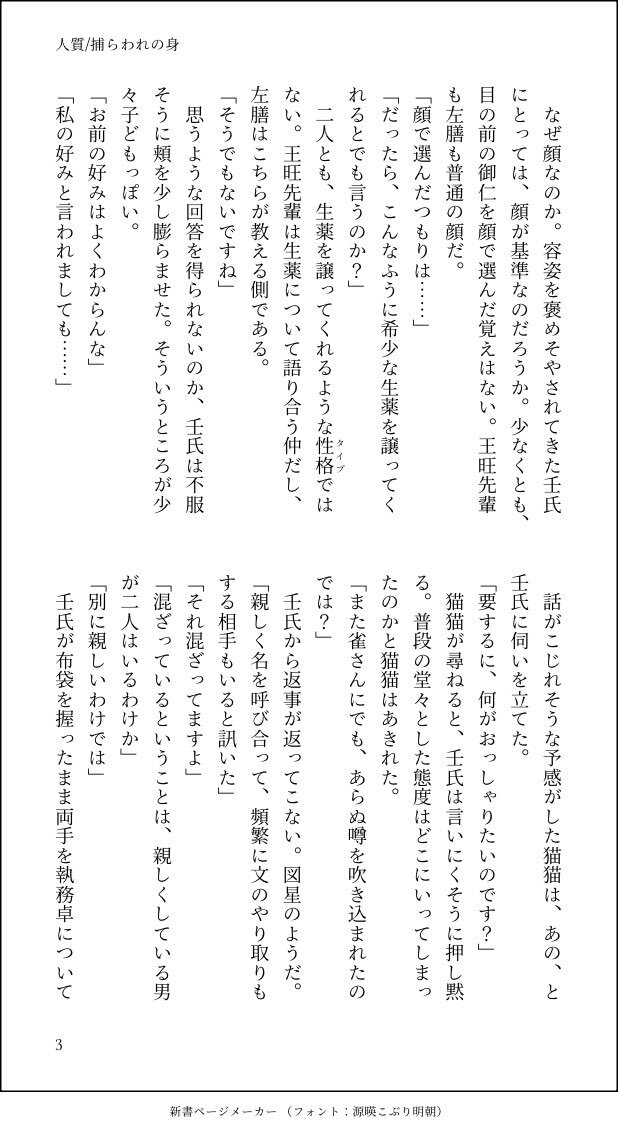 人質/捕らわれの身
　なぜ顔なのか。容姿を褒めそやされてきた壬氏
にとっては、顔が基準なのだろうか。少なくとも、
目の前の御仁を顔で選んだ覚えはない。王旺先輩
も左膳も普通の顔だ。
「顔で選んだつもりは……」
「だったら、こんなふうに希少な生薬を譲ってく
れるとでも言うのか？」
　二人とも、生薬を譲ってくれるような性格では
タイプ
ない。王旺先輩は生薬について語り合う仲だし、
左膳はこちらが教える側である。
「そうでもないですね」
　思うような回答を得られないのか、壬氏は不服
そうに頬を少し膨らませた。そういうところが少
々子どもっぽい。
「お前の好みはよくわからんな」
「私の好みと言われましても……」
　話がこじれそうな予感がした猫猫は、あの、と
壬氏に伺いを立てた。
「要するに、何がおっしゃりたいのです？」
　猫猫が尋ねると、壬氏は言いにくそうに押し黙
る。普段の堂々とした態度はどこにいってしまっ
たのかと猫猫はあきれた。
「また雀さんにでも、あらぬ噂を吹き込まれたの
では？」
　壬氏から返事が返ってこない。図星のようだ。
「親しく名を呼び合って、頻繁に文のやり取りも
する相手もいると訊いた」
「それ混ざってますよ」
「混ざっているということは、親しくしている男
が二人はいるわけか」
「別に親しいわけでは」
　壬氏が布袋を握ったまま両手を執務卓について
3
新書ページメーカー（フォント：源暎こぶり明朝）